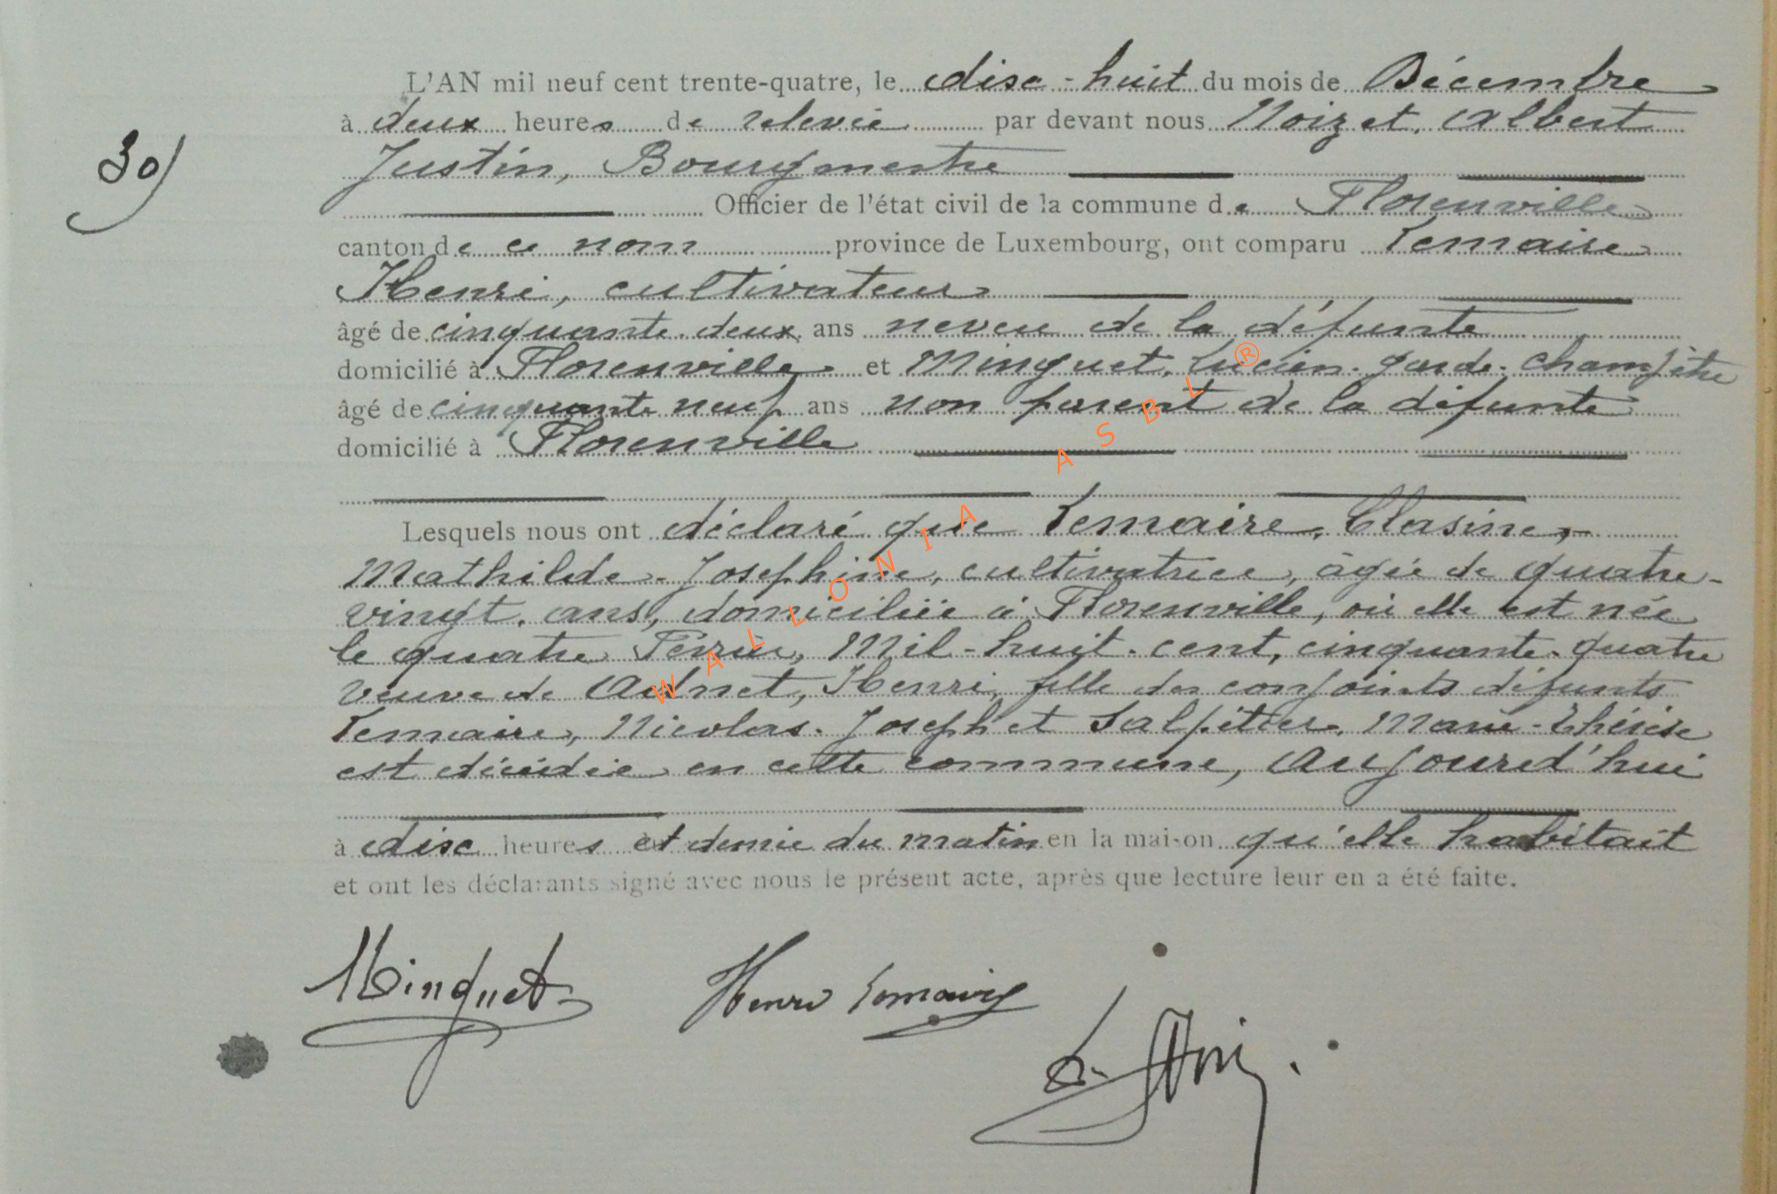 L'AN mil neuf cent trente-quatre, le disc-huit du mois de Décembre
à deux heures de relevée par devant nous Noizet, Albert
30/
Justin, Bourgmestre
Officier de l'état civil de la commune de Florenville
canton de ce nom province de Luxembourg, ont comparu Lemaire
Henri, cultivateur
âgé de cinquante-deux ans neveu de la défunte
domicilié à Florenville et Minguet, Lucien garde-champêtre
âgé de cinquante neuf ans non parent de la défunte
domicilié à Florenville
Lesquels nous ont déclaré que Lemaire, Clasine,
Mathilde-Josephine, cultivatrice, âgée de quatre-
vingt ans, domiciliée à Florenville, où elle est née
le quatre Février, Mil-huit-cent, cinquante-quatre
veuve de Aulnet, Henri, fille des conjoints défunts
Lemaire, Nicolas-Joseph et Salpêtier, Marie-Thérèse
est décédée en cette commune, Aujourd'hui
à disc heures et demie du matin en la maison qu'elle habitait
et ont les déclarants signé avec nous le présent acte, après que lecture leur en a été faite.
Minguet Henri Lemaire
WALLONIA ASBL ®